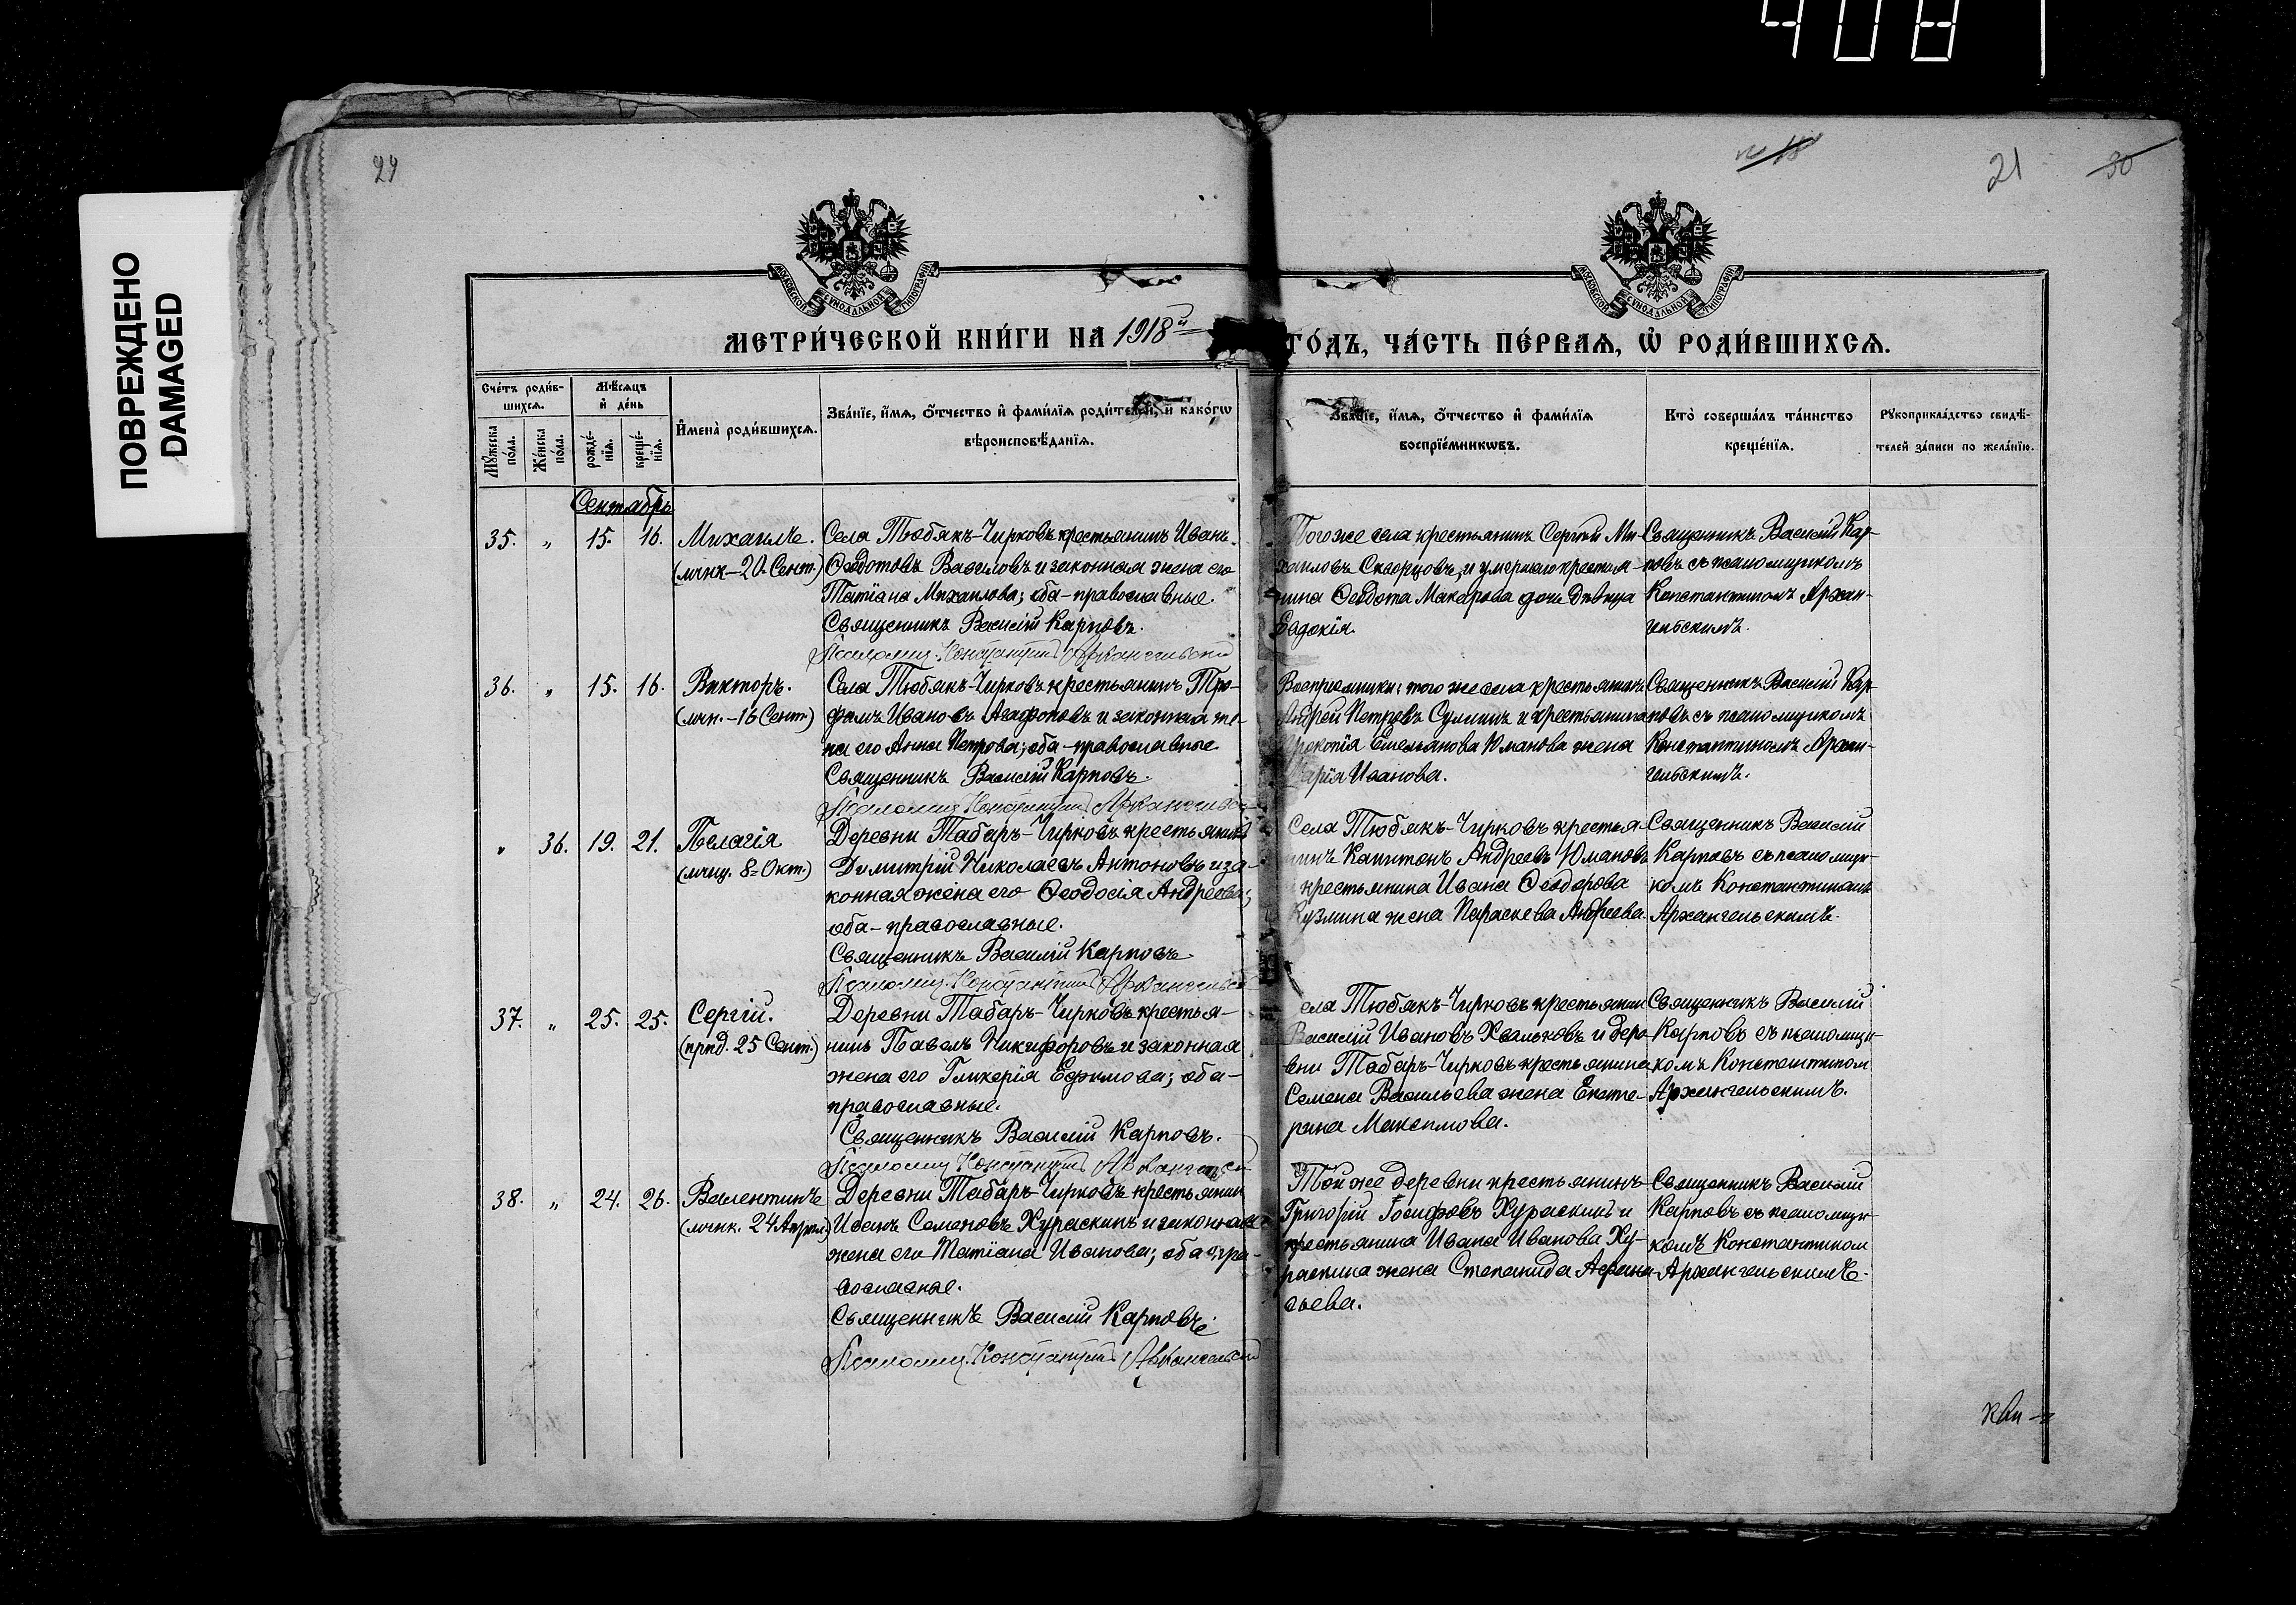 408
ПОВРЕЖДЕНО
DAMAGED
24
21
30
МОСКОВСКОЙ СѴНОДАЛЬНОЙ ТИПОГРАФІИ
МОСКОВСКОЙ СѴНОДАЛЬНОЙ ТИПОГРАФІИ
МЕТРИ́ЧЕСКОЙ КНИ́ГИ НА 1918й
ГО́ДЪ, ЧА́СТЬ ПЕ́РВАѦ, Ѡ҆ РОДИ́ВШИХСѦ.
Сче́тъ роди́в-
шихсѧ.
Мѣ́сѧцъ
и҆ де́нь
Мꙋ́жеска по́ла.
Же́нска по́ла.
рожде́-
нїѧ.
креще́-
нїѧ.
И҆мена̀ роди́вшихсѧ.
Зва́нїе, и҆́мѧ, ѻ҆́тчество и҆ фами́лїѧ роди́телей, и҆ како́гѡ
вѣроисповѣ́данїѧ.
Зва́нїе, и҆́мѧ, ѻ҆́тчество и҆ фами́лїѧ
воспрїе́мникѡвъ.
Кто̀ соверша́лъ та́инство
креще́нїѧ.
Рꙋкоприкла́дство свидѣ́-
телей за́писи по жела́нїю.
Сентябрь
35. „ 15. 16. Михаилъ.
(мчнк-20 Сент.)
Села Тюбякъ-Чирковъ крестьянинъ Иванъ
Ѳедотовъ Вавиловъ и законная жена его
Татіана Михаилова; оба-православные.
Священникъ Василій Карповъ.
Псаломщ. Константинъ Архангельскій
Того же села крестьянинъ Сергѣй Ми-
хаиловъ Скворцовъ, и умершаго крестья-
нина Ѳедота Макарова дочь дѣвица
Евдокія.
Священникъ Василій Кар-
повъ съ псаломщикомъ
Константиномъ Архан-
гельскимъ.
36. „ 15. 16. Викторъ.
(мчн.-16 Сент.)
Села Тюбякъ-Чирковъ крестьянинъ Тро-
фимъ Ивановъ Агафоновъ и законная же-
на его Анна Петрова; оба-православные
Священникъ Василій Карповъ.
Псаломщ. Константинъ Архангельскій
Воспріемники: того же села крестьянинъ
Андрей Петровъ Сулинъ и крестьянина
Прокопія Емельянова Юманова жена
Марія Иванова.
Священникъ Василій Кар-
повъ съ псаломщикомъ
Константиномъ Архан-
гельскимъ.
„ 36. 19. 21. Пелагія
(мчиц. 8-Окт.)
Деревни Табаръ-Чирковъ крестьянинъ
Димитрій Николаевъ Антоновъ и за-
конная жена его Ѳеодосія Андреева;
оба-православные.
Священникъ Василій Карповъ
Псаломщ. Константинъ Архангельскій
Села Тюбякъ-Чирковъ крестья-
нинъ Капитонъ Андреевъ Юмановъ
крестьянина Ивана Ѳеодорова
Кузмина жена Параскева Андреева.
Священникъ Василій
Карповъ съ псаломщи-
комъ Константиномъ
Архангельскимъ.
37. „ 25. 25. Сергій.
(прпд. 25 Сент.)
Деревни Табаръ-Чирковъ крестья-
нинъ Павелъ Никифоровъ и законная
жена его Гликерія Ефимова; оба-
православные.
Священникъ Василій Карповъ.
Псаломщ. Константинъ Архангельскій
Села Тюбякъ-Чирковъ крестьянин
Василій Ивановъ Хвальковъ и дере-
вни Табаръ-Чирковъ крестьянина
Семена Васильева жена Екате-
рина Максимова.
Священникъ Василій
Карповъ съ псаломщи-
комъ Константином
Архангельскимъ.
38. „ 24. 26. Валентинъ
(мчнк. 24 Апрѣл)
Деревни Табаръ-Чирковъ крестьянин
Иванъ Семеновъ Хураскинъ и законная
жена его Татіана Иванова; оба-пра-
вославные.
Священникъ Василій Карповъ.
Псаломщ. Константинъ Архангельскій
Той же деревни крестьянинъ
Григорій Іосифовъ Хураскинъ и
крестьянина Ивана Иванова Ху-
раскина жена Степанида Афана-
сьева.
Священникъ Василій
Карповъ съ псаломщи-
комъ Константином
Архангельскимъ.